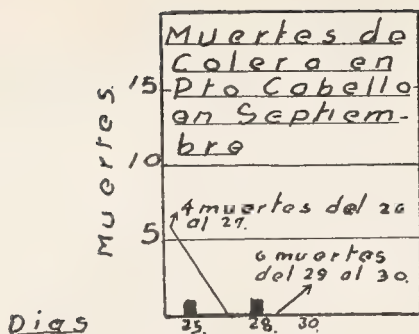 Muertes de
Colera en
Pto Cabello
en Septiem-
bre
Muertes.
15
10
5
4 muertes del 26
al 27.
6 muertes
del 29 al 30.
Dias
25. 28. 30.